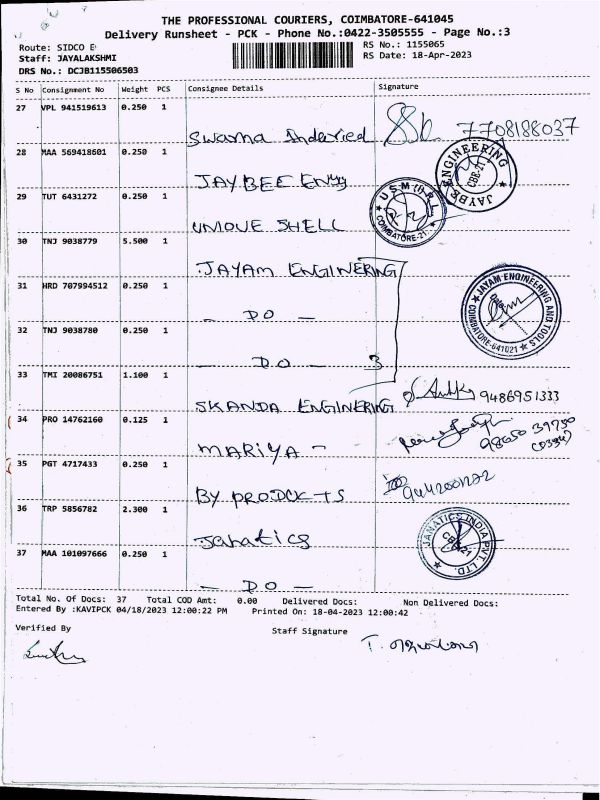 THE PROFESSIONAL COURIERS, COIMBATORE-641045
Delivery Runsheet - PCK - Phone No.:0422-3505555 - Page No.:3
Route: SIDCO E
RS No.: 1155065
Staff: JAYALAKSHMI
RS Date: 18-Apr-2023
DRS No.: DCJB115506503
S No Consignment No Weight PCS Consignee Details Signature
27 VPL 941519613 0.250 1
Swarna 7708188037
28 MAA 569418601 0.250 1
JAYBEE ENgg
JAYBEE ENGINEERING CBE-21
29 TUT 6431272 0.250 1
UNIQUE SHELL
COIMBATORE-21
30 TNJ 9038779 5.500 1
JAYAM ENGINERING
31 HRD 707994512 0.250 1
- DO -
JAYAM ENGINEERING AND TOOLS
COIMBATORE-641021
32 TNJ 9038780 0.250 1
- DO - 3
33 TMI 20086751 1.100 1
SKANDA ENGINERING 9486951333
34 PRO 14762160 0.125 1
MARIYA -
35 PGT 4717433 0.250 1
BY PRODCKTS
36 TRP 5856782 2.300 1
Janatics
JANATICS INDIA PVT. LTD.
37 MAA 101097666 0.250 1
- DO -
Total No. Of Docs: 37 Total COD Amt: 0.00 Delivered Docs: Non Delivered Docs:
Entered By :KAVIPCK 04/18/2023 12:00:22 PM Printed On: 18-04-2023 12:00:42
Verified By
Staff Signature